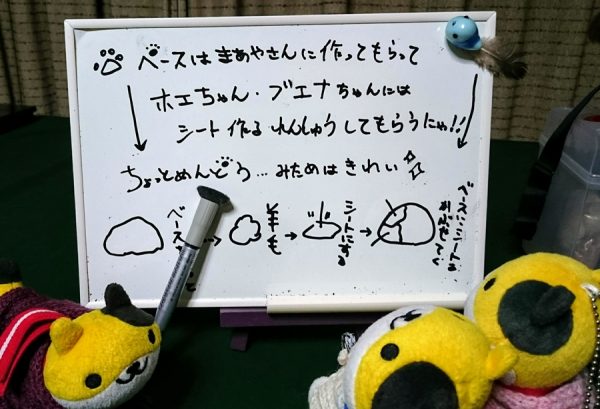 ベースはまあやさんに作ってもらって
ホエちゃん・ブエナちゃんには
シート作るれんしゅうしてもらうにゃ!!
ちょっとめんどう…みためはきれい
ベース
羊毛
シートにする
ベースにシートを